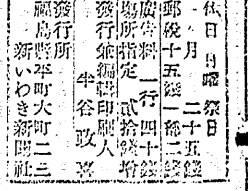 休日 日曜 祭日
一月 二十五錢
郵税十五錢 一部二錢
廣告料 一行四十錢
場所指定 貳拾錢增
發行兼編輯印刷人
半谷政喜
發行所
福島縣平町大町二三
新いわき新聞社